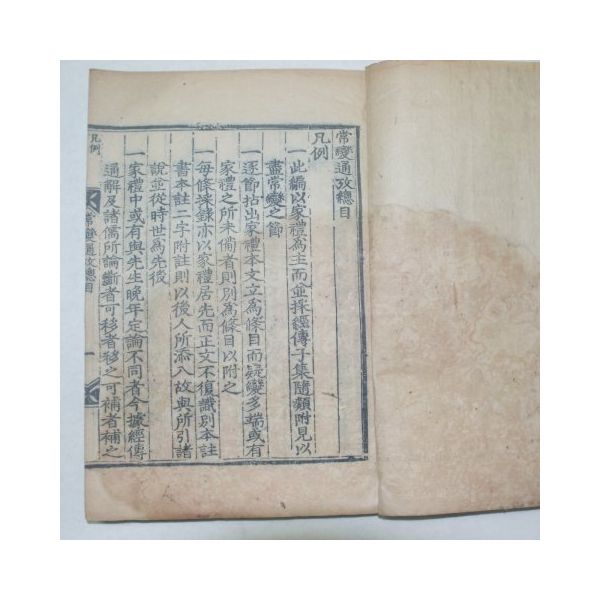 常變通攷總目
凡例
一此編以家禮為主而並採經傳子集隨類附見以
盡常變之節
一逐節拈出家禮本文立為條目而疑變多端或有
家禮之所未備者則別為條目以附之
一每條採錄亦以家禮居先而正文不復識別本註
書本註二字附註則以後人所添入故與所引諸
說並從時世為先後
一家禮中或有與先生晚年定論不同者今據經傳
通解及諸儒所論斷者可移者移之可補者補之
常變通攷總目
一
凡例